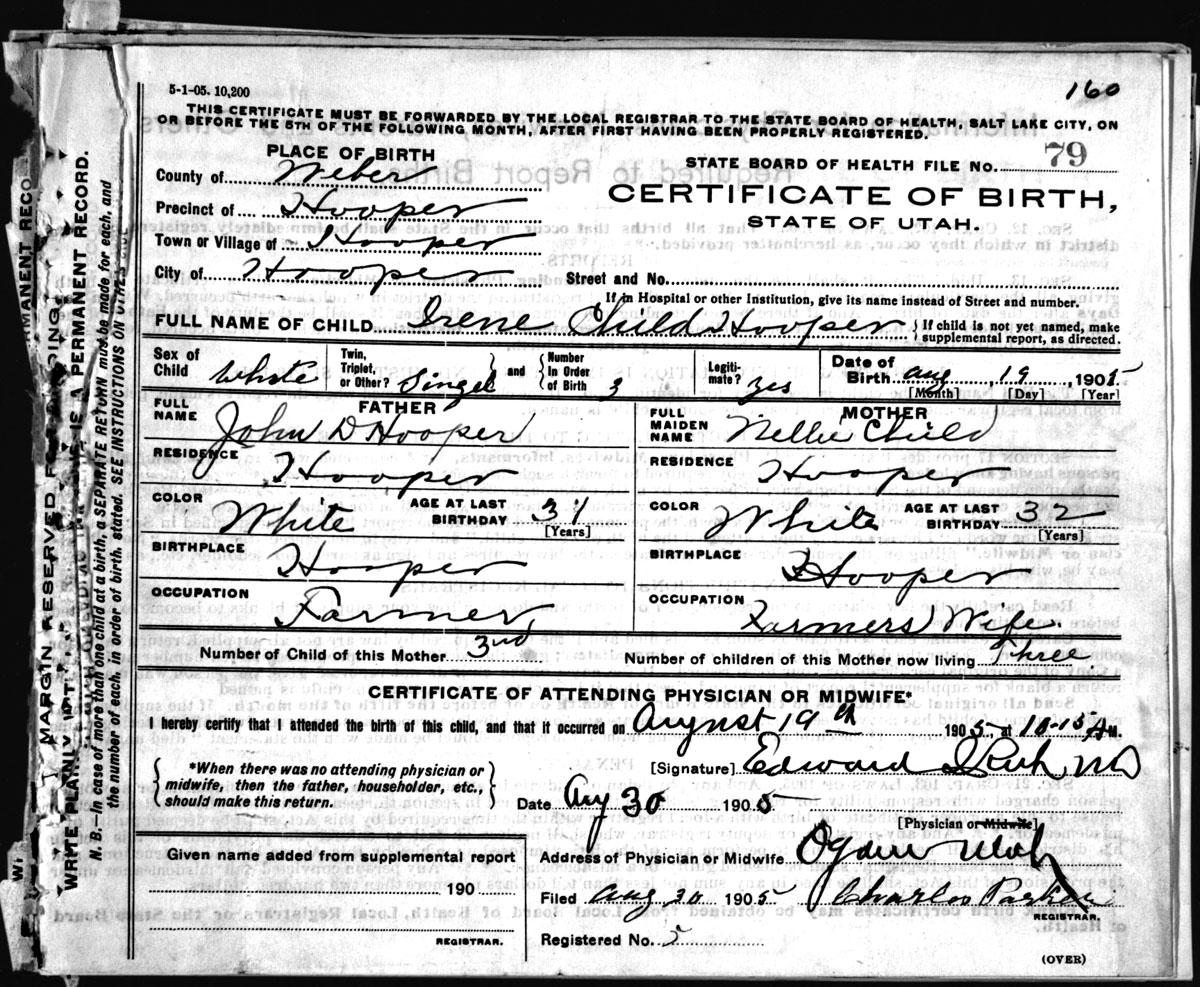 5-1-05. 10,200
160
THIS CERTIFICATE MUST BE FORWARDED BY THE LOCAL REGISTRAR TO THE STATE BOARD OF HEALTH, SALT LAKE CITY, ON
OR BEFORE THE 5TH OF THE FOLLOWING MONTH, AFTER FIRST HAVING BEEN PROPERLY REGISTERED.
PLACE OF BIRTH
County of Weber
Precinct of Hooper
Town or Village of Hooper
City of Hooper
STATE BOARD OF HEALTH FILE No. 79
CERTIFICATE OF BIRTH,
STATE OF UTAH.
Street and No.
If in Hospital or other Institution, give its name instead of Street and number.
FULL NAME OF CHILD Irene Child Hooper { If child is not yet named, make
supplemental report, as directed.
Sex of Child White
Twin, Triplet, or Other? Singel } and { Number In Order of Birth 3
Legiti-mate? yes
Date of Birth Aug, 19, 1905
[Month] [Day] [Year]
FATHER
FULL NAME John D Hooper
RESIDENCE Hooper
COLOR White AGE AT LAST BIRTHDAY 31
[Years]
BIRTHPLACE Hooper
OCCUPATION Farmer
MOTHER
FULL MAIDEN NAME Nellie Child
RESIDENCE Hooper
COLOR White AGE AT LAST BIRTHDAY 32
[Years]
BIRTHPLACE Hooper
OCCUPATION Farmers Wife
Number of Child of this Mother 3rd
Number of children of this Mother now living Three
CERTIFICATE OF ATTENDING PHYSICIAN OR MIDWIFE*
I hereby certify that I attended the birth of this child, and that it occurred on August 19th 1905, at 10-15 AM.
{ *When there was no attending physician or
midwife, then the father, householder, etc.,
should make this return. }
[Signature] Edward
Date Aug 30 1905
[Physician or Midwife]
Address of Physician or Midwife Ogden Utah
Given name added from supplemental report
190
REGISTRAR.
Filed Aug 30 1905 Charles Parker
REGISTRAR.
Registered No. 5
(OVER)
MARGIN RESERVED FOR BINDING
WRITE PLAINLY IS A PERMANENT RECORD.
N. B.—In case of more than one child at a birth, a SEPARATE RETURN must be made for each, and
the number of each, in order of birth, stated. SEE INSTRUCTIONS ON